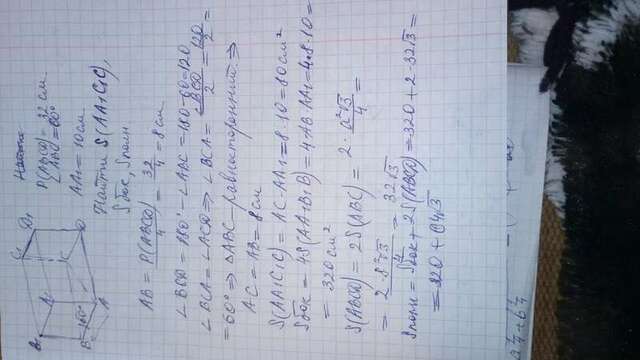 P(ABCD) = 32 см
∠ABC = 60°
AA₁ = 10 см
Найти S(AA₁C₁C),
Sбок, Sполн
AB = P(ABCD)/4 = 32/4 = 8 см
∠BCD = 180° - ∠ABC = 180-60=120
∠BCA = ∠ACD ⇒ ∠BCA = ∠BCD/2 = 120/2 =
= 60° ⇒ △ABC - равносторонний ⇒
AC = AB = 8 см
S(AA₁C₁C) = AC·AA₁ = 8·10 = 80 см²
Sбок = 4S(AA₁B₁B) = 4·AB·AA₁ = 4·8·10 =
= 320 см²
S(ABCD) = 2S(ABC) = 2·a²√3/4 =
= 2·8²√3/4 = 32√3
Sполн = Sбок + 2S(ABCD) = 320 + 2·32√3 =
= 320 + 64√3